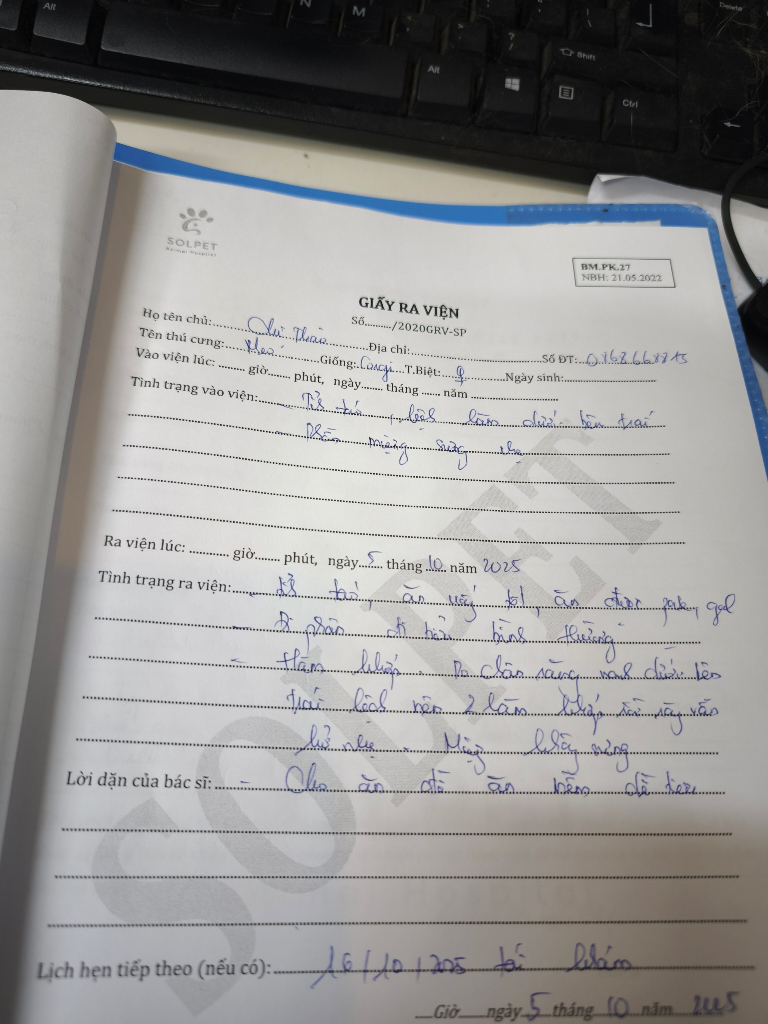 Alt
N
M
?
/
Alt
Shift
Ctrl
Delete
SOLPET
Animal Hospital
BM.PK.27
NBH: 21.05.2022
GIẤY RA VIỆN
Số........./2020GRV-SP
Họ tên chủ: Thảo Địa chỉ: Số ĐT:
Tên thú cưng: Giống: Corgi T.Biệt: ♀ Ngày sinh:
Vào viện lúc: ....... giờ...... phút, ngày...... tháng ...... năm
Tình trạng vào viện: - Tỉnh táo, lệch hàm dưới bên trái
- Phần miệng sưng nhẹ
Ra viện lúc: .......... giờ....... phút, ngày 5 tháng 10 năm 2025
Tình trạng ra viện: - táo, ăn uống tốt, ăn được pate, gel
- Đi phân đi tiểu bình thường
- Hàm khớp. Do chân răng nanh dưới bên
trái lệch nên 2 hàm khớp vẫn
hở nhẹ. Miệng không sưng
Lời dặn của bác sĩ: - Cho ăn đồ ăn mềm dễ tiêu
Lịch hẹn tiếp theo (nếu có): 16/10/2025 tái khám
Giờ ngày 5 tháng 10 năm 2025
SOLPET